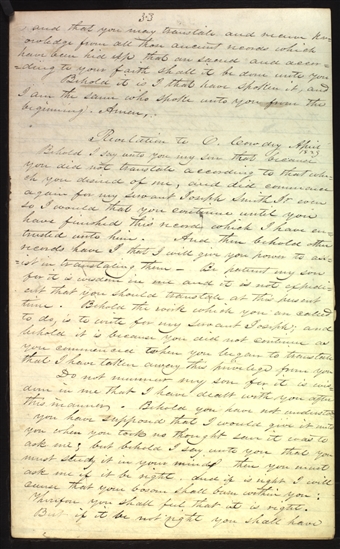 33
and that you may translate and receive kn-
owledge from all those ancient records which
have been hid up, that are sacred and accor-
ding to your faith shall it be done unto you
Behold it is I that have spoken it, and
I am the same who spoke unto you from the
beginning. Amen,
Revelation to O. Cowdry April
Behold I say unto you my son that because
you did not translate according to that whi-
ch you desired of me, and did commence
again for my servant Joseph Smith Jr even
so I would that you continue until you
have finished this record, which I have en-
trusted unto him. And then behold other
records have I, that I will give you power to ass-
ist in translating them — Be patient my son
for it is wisdom in me and it is not expedi-
ent that you should translate at this present
time. Behold the work which you are called
to do, is to write for my servant Joseph; and
behold it is because you did not continue as
you commenced when you began to translate
that I have taken away this privilege from you
Do not murmur my son for it is wis-
dom in me that I have dealt with you after
this manner. Behold you have not understood
you have supposed that I would give it unto
you when you took no thought save it was to
ask me; but behold I say unto you that you
must study it in your mind, then you must
ask me if it be right and if is right I will
cause that your bosom shall burn within you:
Therefore you shall feel that it is right.
But if it be not right you shall have